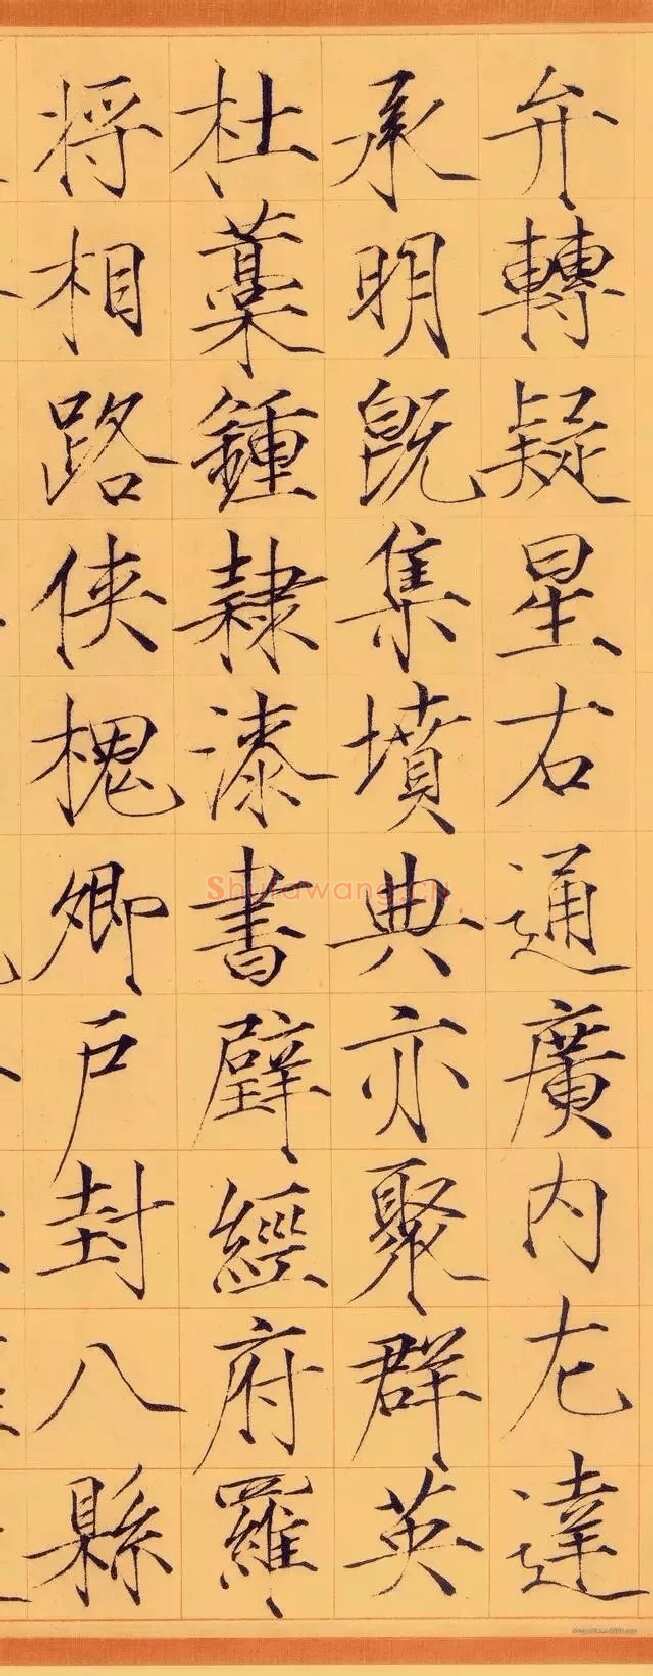 弁轉疑星右通廣內左達
承明既集墳典亦聚群英
杜藁鍾隸漆書壁經府羅
將相路俠槐卿户封八縣